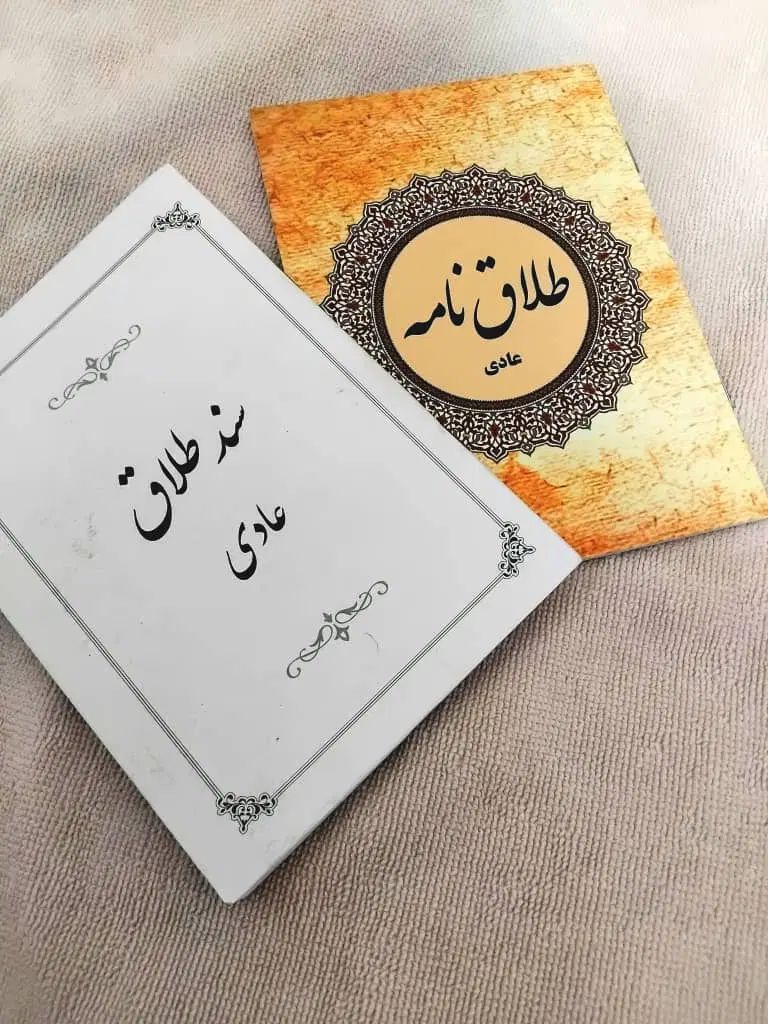 طلاق نامه
عادی
سند طلاق
عادی